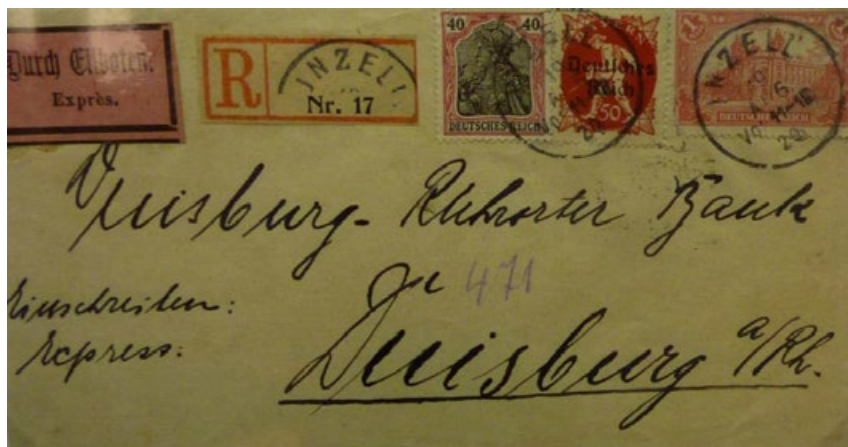 Durch Eilboten.
Exprès.
R
INZELL
Nr. 17
40 40
DEUTSCHES REICH
Deutsches
Reich
50
INZELL
20
1
DEUTSCHES REICH
INZELL
6
20
Duisburg-Ruhrorter Bank
in 471
Einschreiben:
Express:
Duisburg a/Rh.